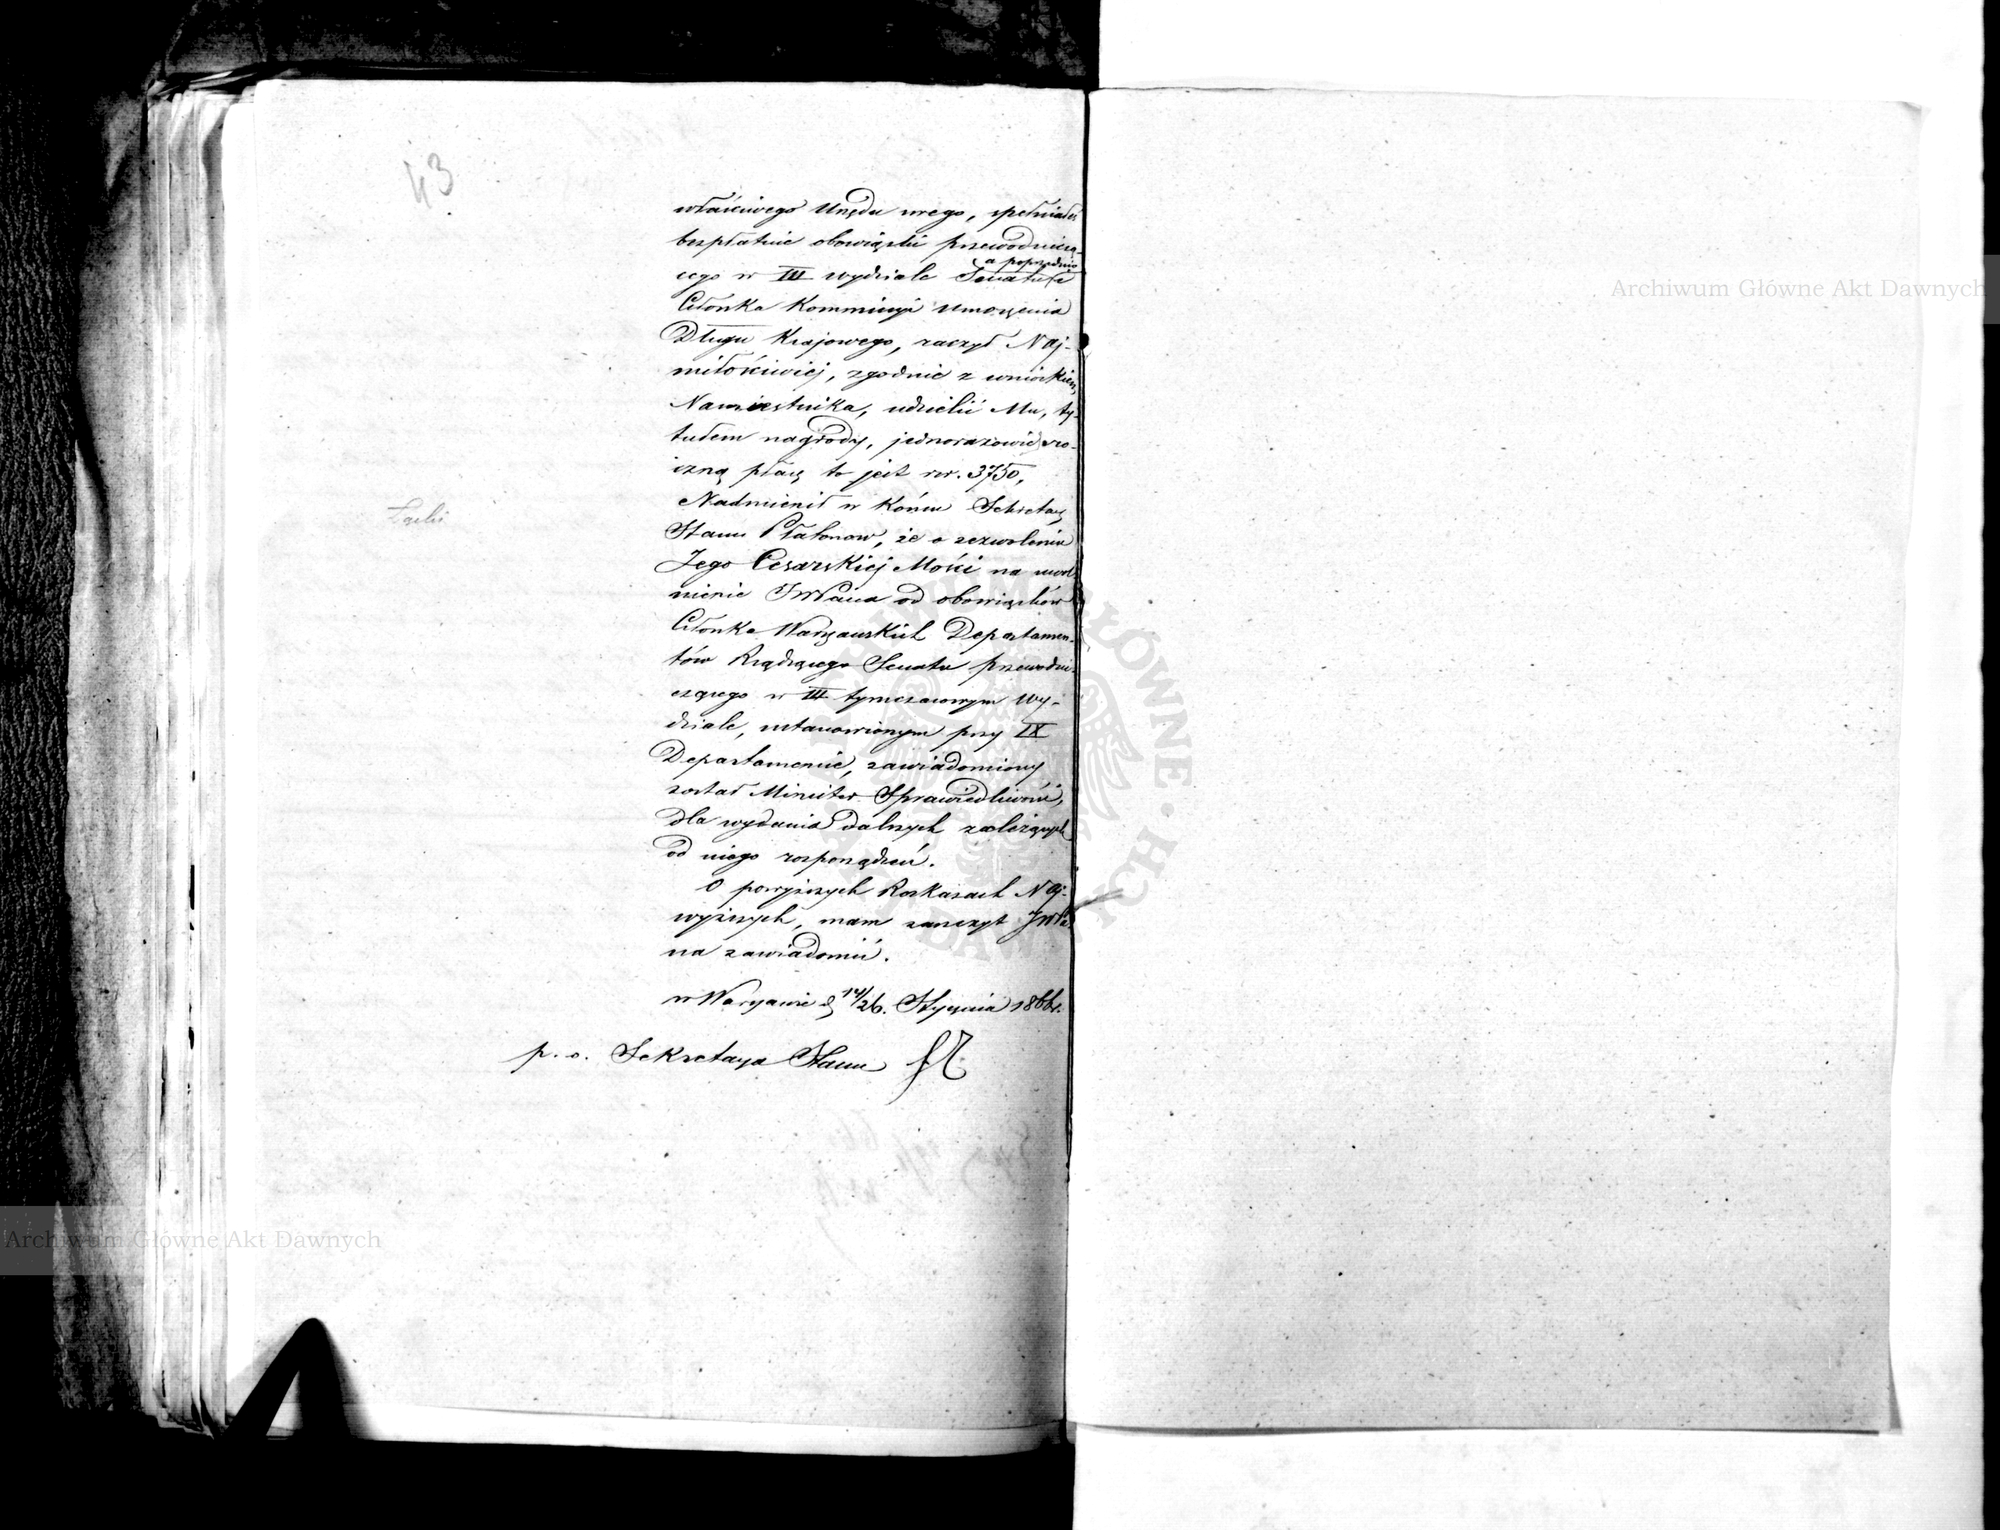 43
właściwego Urzędu swego, spełniałeś
bezpłatnie obowiązki przewodniczą-
a poprzednio
cego w III wydziale Senatu
Członka Kommissyi Umorzenia
Długu Krajowego, raczył Naj-
miłościwiej, zgodnie z wnioskiem
Namiestnika, udzielić Mu, ty-
tułem nagrody, jednorazowie, ro-
czną płacę to jest rsr. 3750,
Nadmienił w końcu Sekretarz
Stanu Płatonow, że o zezwoleniu
Jego Cesarskiej Mości na uwol-
nienie JWPana od obowiązków
Członka Warszawskich Departamen-
tów Rządzącego Senatu przewodni-
czącego w III tymczasowym Wy-
dziale, ustanowionym przy IX
Departamencie, zawiadomiony
został Minister Sprawiedliwości,
dla wydania dalszych zależących
od niego rozporządzeń.
O powyższych Rozkazach Naj-
wyższych, mam zaszczyt JWPa-
na zawiadomić.
w Warszawie d 14/26. Stycznia 1866 r.
p. o. Sekretarza Stanu
Archiwum Główne Akt Dawnych
Archiwum Główne Akt Dawnych